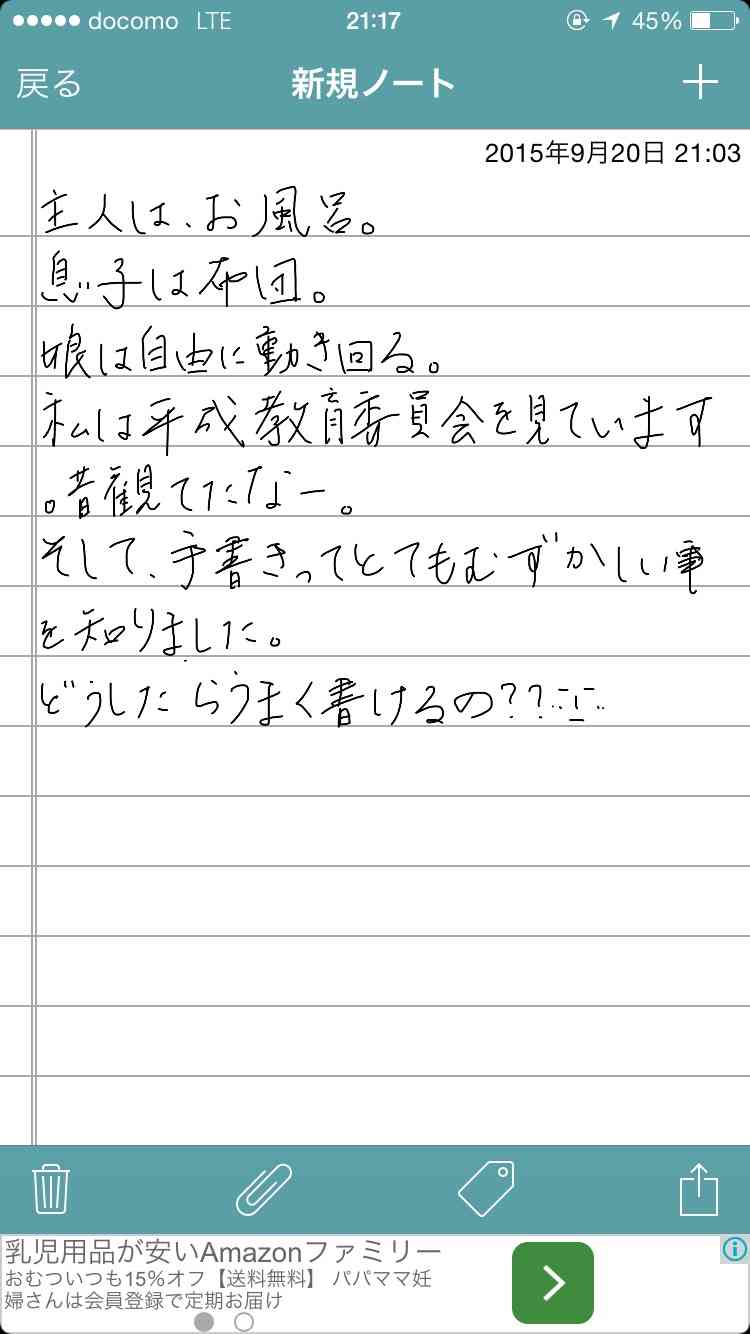 docomo LTE 21:17 45%
戻る 新規ノート
2015年9月20日 21:03
主人は、お風呂。
息子は布団。
娘は自由に動き回る。
私は平成教育委員会を見ています
。昔観てたなー。
そして、手書きってとてもむずかしい事
を知りました。
どうしたらうまく書けるの??
乳児用品が安いAmazonファミリー
おむついつも15%オフ【送料無料】 パパママ妊
婦さんは会員登録で定期お届け